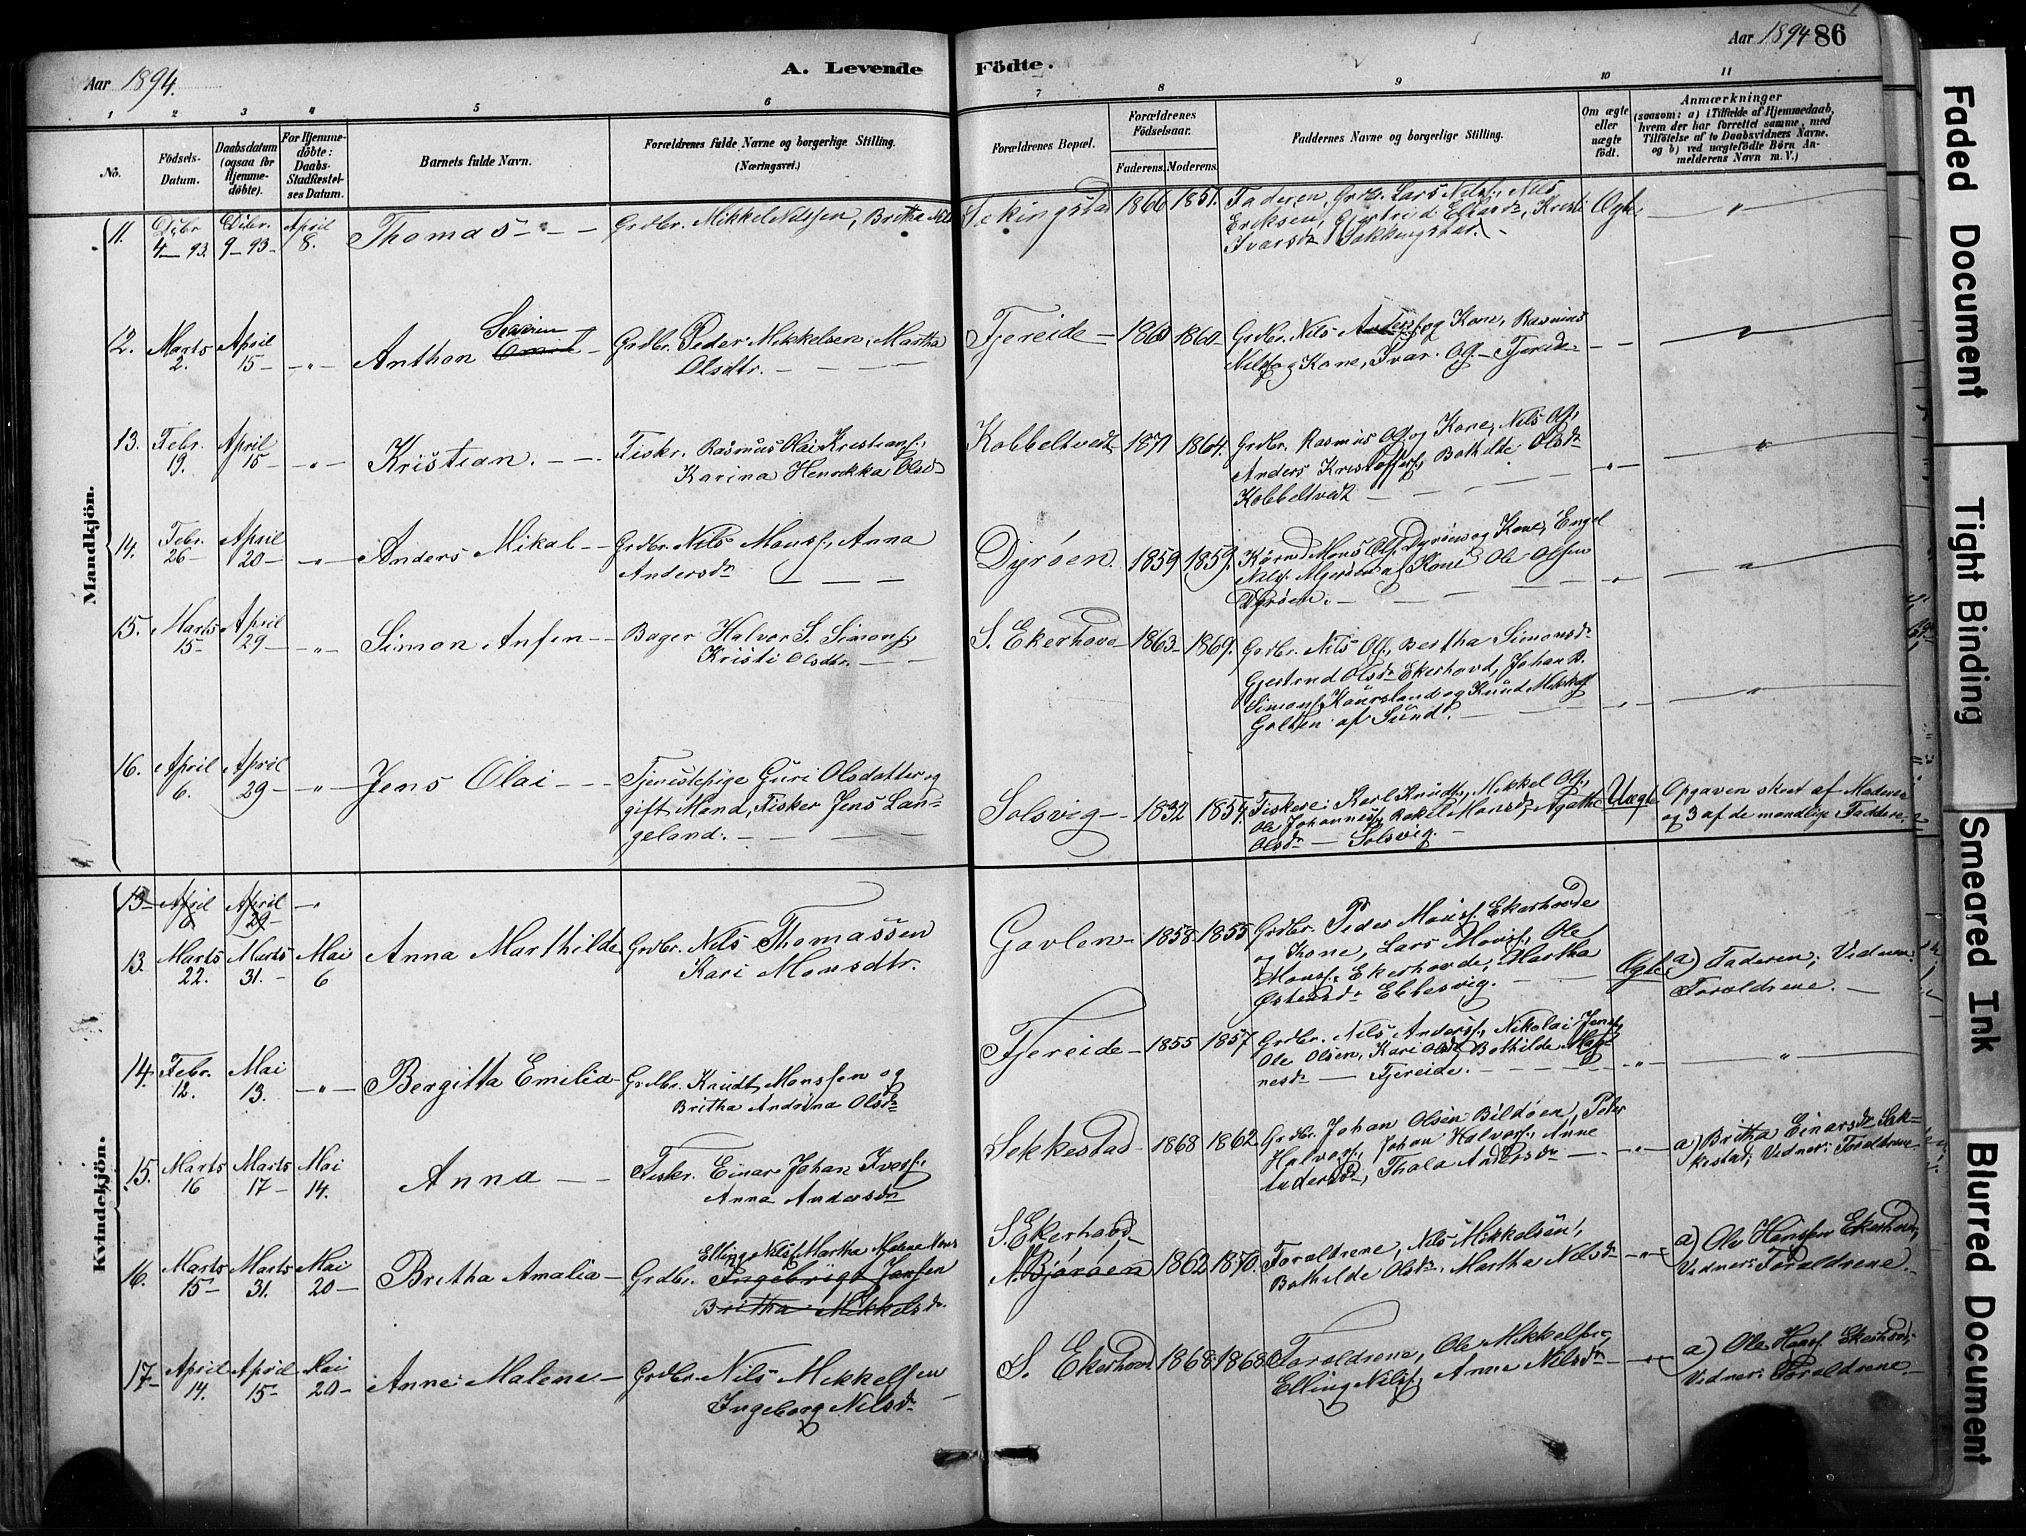 Aar 1894.
A. Levende Födte.
Aar 1894 86
1 2 3 4 5 6 7 8 9 10 11
No.
Födsels-Datum.
Daabsdatum (ogsaa for Hjemme-döbte).
For Hjemme-döbte: Daabs-Stadfæstel-ses Datum.
Barnets fulde Navn.
Forældrenes fulde Navne og borgerlige Stilling.
(Næringsvei.)
Forældrenes Bopæl.
Forældrenes Födselsaar.
Faderens. Moderens.
Faddernes Navne og borgerlige Stilling.
Om ægte eller uægte födt.
Anmærkninger
(saasom: a) i Tilfælde af Hjemmedaab,
hvem der har forrettet samme, med
Tilföielse af to Daabsvidners Navne.
og b) ved uægtefödte Börn An-
melderens Navn m. V.)
Mandkjön.
11. Dcbr. 4 - 93. Dcbr. 9 - 93 - April 8. Thomas - " - Grdbr. Mikkel Nilssen, Britha Nils Sekingstad 1866 1851. Faderen, Grdbr. Lars Nilsf., Nils
Eriksen, Gjertrud Ellingsdr, Kristi
Ivarsdr Sekkingstad. - Ægte "
12. Marts 2. April 15 - " - Anthon Severin Grdbr. Peder Mikkelsen, Martha
Olsdtr. - Fjereide - 1860 1860. Grdbr. Nils Andersf. og Kone, Rasmus
Nilsf og Kone, Ivar Olf. - Fjereide - "
13. Febr. 19. April 15 - " - Kristian. - Fiskr. Rasmus Olai Kristiansf.,
Karina Henrikka Olsdr Kobbeltvedt 1871 1864. Grdbr. Rasmus Olf. og Kone, Nils Olf.,
Anders Kristoffersf., Bothilde Olsdr
Kobbeltvedt - " "
14. Febr. 26 - April 20 - " - Anders Mikal - Grdbr. Nils Monsf., Anna
Andersdr - Dyröen. 1859 1859. Mons Olf. Dyröen og Kone, Engel
Nilsf. Algeröen og Kone Ole Olsen
Dyröen. - " "
15. Marts 15 April 29 - " - Simon Ansen - Bager Halvor S. Simonsf
Kristi Olsdtr. - S. Ekerhovd 1863 1869. Grdbr. Nils Olf., Bertha Simonsdr
Gjertrud Olsdr Ekerhovd, Johan B.
Simonsf. Kaursland og Knud Mikkelsf
Golten af Sund. - " "
16. April 6. April 29 - " - Jens Olai - Tjenestepige Guri Olsdatter og
gift Mand, Fisker Jens Lan-
geland. - Solsvig - 1832 1854. Fiskere: Karl Knuds., Mikkel Olf.,
Ole Johannesf., Rakel Monsdr, Agathe
Olsdr - Solsvig. - Uægte Opgaven skeet af Moderen
og 3 af de mandlige Faddere.
Kvindekjön.
13 - April 6 April 29 - "
13. Marts 22. Marts 31. - Mai 6 Anna Marthilde Grdbr. Nils Thomassen
Kari Monsdtr. Gavlen - 1858 1855 Grdbr. Peder Monsf. Ekerhovde
og Kone, Lars Monsf., Ole
Monsf. Ekerhovde, Martha
Østensdr Ebbesvig. - Ægte a) Faderen; Vidner:
Forældrene. -
14. Febr. 12. Mai 13. - " - Bergitta Emilia - Grdbr. Knudt Monssen og
Britha Andrina Olsdr Fjereide - 1855 1857 Grdbr. Nils Andersf., Nikolai Jensf.,
Ole Olsen, Kari Olsdr, Bothilde Mag-
nesdr - Fjereide. - " - "
15. Marts 16 Marts 17 - Mai 14. Anna - Fiskr. Einar Johan Iversf.,
Anna Andersdr Sekkestad - 1868 1862 Grdbr. Johan Olsen Bildöen, Peter
Halvorsf., Johan Halvorsf., Anne
Andersdr, Thala Andersdr - " - a) Britha Einarsdr Sek-
kestad; Vidner: Forældrene
16. Marts 15 - Marts 31. Mai 20 - Britha Amalia - Grdbr. Elling Nilsf, Martha Malene Mons
Ingebrigt Jansen
Britha Mikkelsdr. S. Ekerhovd
N. Bjoröen 1862 1870. Forældrene, Nils Mikkelsen,
Bothilde Olsdr, Martha Nilsdr - " - a) Ole Hanssen Ekerhovd,
Vidner: Forældrene.
17 - April 14. April 15 - Mai 20 - Anne Malene - Grdbr. Nils Mikkelsen
Ingeborg Nilsdr - S. Ekerhovd 1868 1868 Forældrene, Ole Mikkelsen,
Elling Nilsf., Anne Nilsdr - " - a) Ole Hansf. Ekerhovd;
Vidner: Forældrene. -
Faded Document
Tight Binding
Smeared Ink
Blurred Document